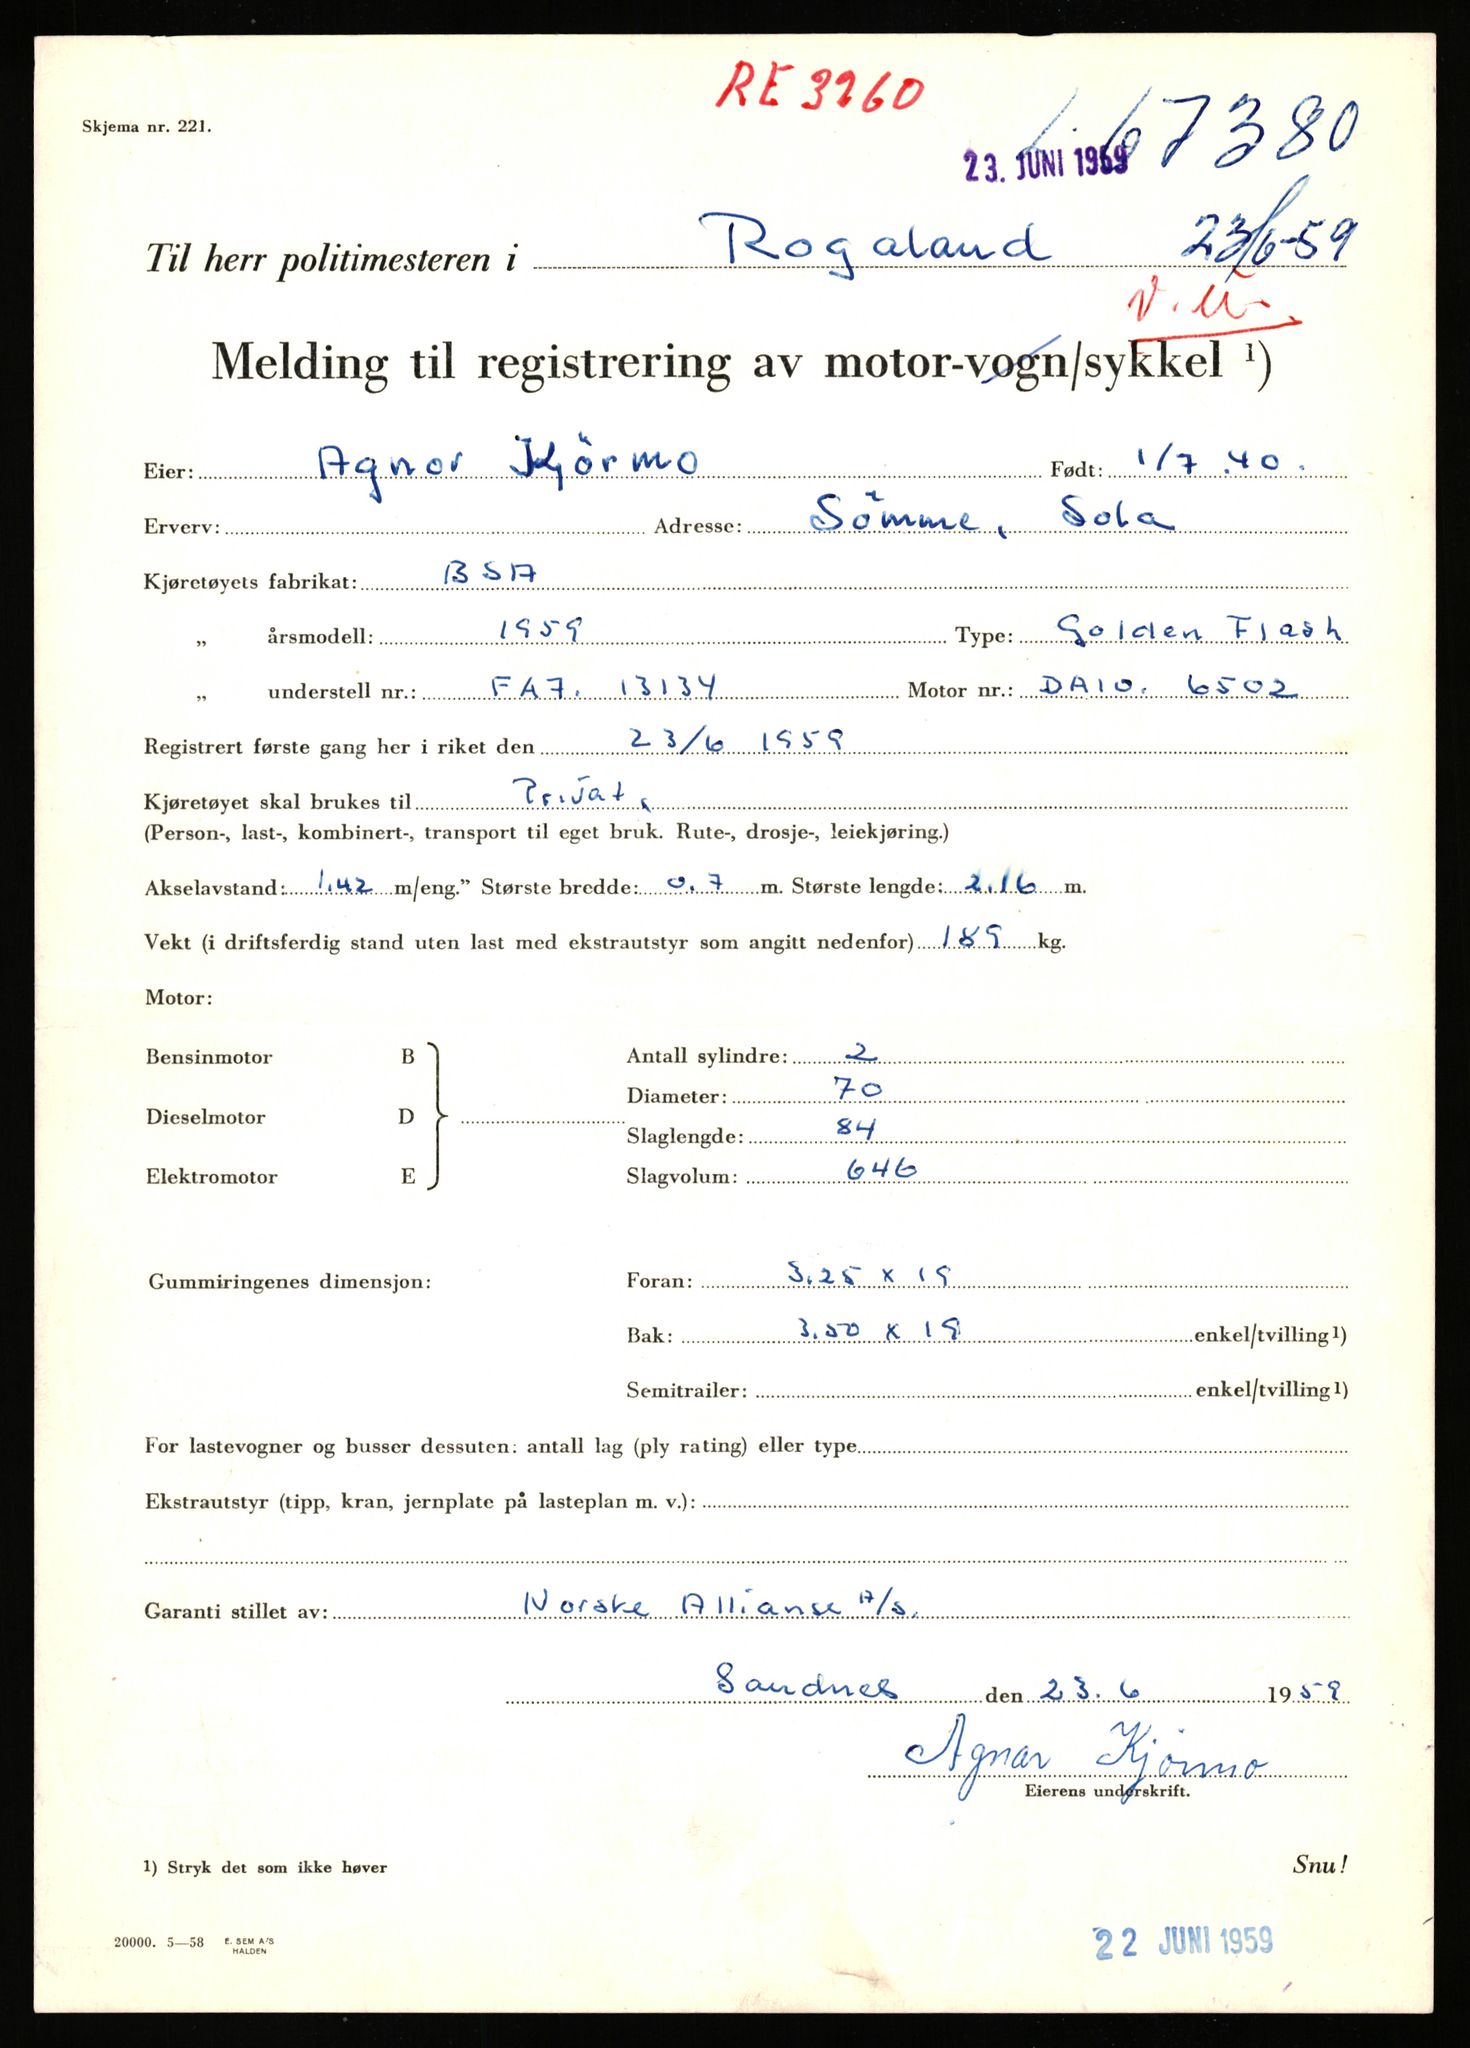 RE 3260
Skjema nr. 221.
L. 67380
23. JUNI 1959
Til herr politimesteren i Rogaland 23/6-59
Melding til registrering av motor-vogn/sykkel ¹)
Eier: Agnor Kjörmo Født: 1/7.40.
Erverv: Adresse: Sömme, Sola
Kjøretøyets fabrikat: BSA
„ årsmodell: 1959 Type: Golden Flash
„ understell nr.: FA7. 13134 Motor nr.: DA10. 6502
Registrert første gang her i riket den 23/6 1959
Kjøretøyet skal brukes til Privat.
(Person-, last-, kombinert-, transport til eget bruk. Rute-, drosje-, leiekjøring.)
Akselavstand: 1.42 m/eng.” Største bredde: 0.7 m. Største lengde: 2.16 m.
Vekt (i driftsferdig stand uten last med ekstrautstyr som angitt nedenfor) 189 kg.
Motor:
Bensinmotor B Antall sylindre: 2
Diameter: 70
Dieselmotor D
Slaglengde: 84
Elektromotor E Slagvolum: 646
Gummiringenes dimensjon: Foran: 3.25 x 19
Bak: 3.50 x 19 enkel/tvilling ¹)
Semitrailer: enkel/tvilling ¹)
For lastevogner og busser dessuten: antall lag (ply rating) eller type
Ekstrautstyr (tipp, kran, jernplate på lasteplan m. v.):
Garanti stillet av: Norske Allianse A/s.
Sandnes den 23.6 1959
Agnar Kjörmo
Eierens underskrift.
1) Stryk det som ikke høver Snu!
20000. 5—58 E. SEM A/S
HALDEN
22 JUNI 1959